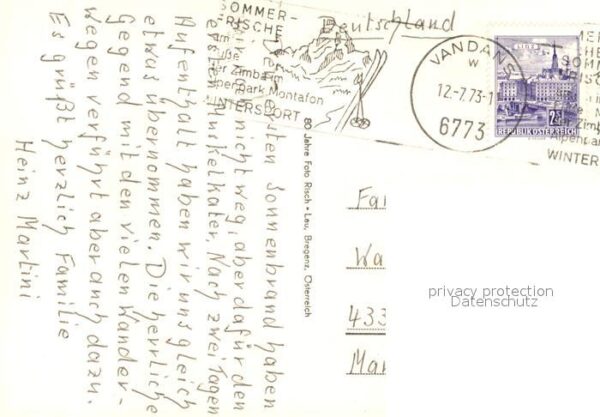 SOMMER-
FRISCHE
am
Fuße
der Zimba im
Alpenpark Montafon
WINTERSPORT
Deutschland
VANDANS
W
12.-7.73-1
6773
LINZ
2
REPUBLIK ÖSTERREICH
SOMM
Zimba
Alpenpar
WINTER
ersten Sonnenbrand haben
wir nicht weg, aber dafür den
ersten Muskelkater. Nach zwei Tagen
Aufenthalt haben wir uns gleich
etwas übernommen. Die herrliche
Gegend mit den vielen Wander-
wegen verführt aber auch dazu.
Es grüßt herzlich Familie
Heinz Martini
80 Jahre Foto Risch-Lau, Bregenz, Österreich
Fa
Wa
433
Mar
privacy protection
Datenschutz